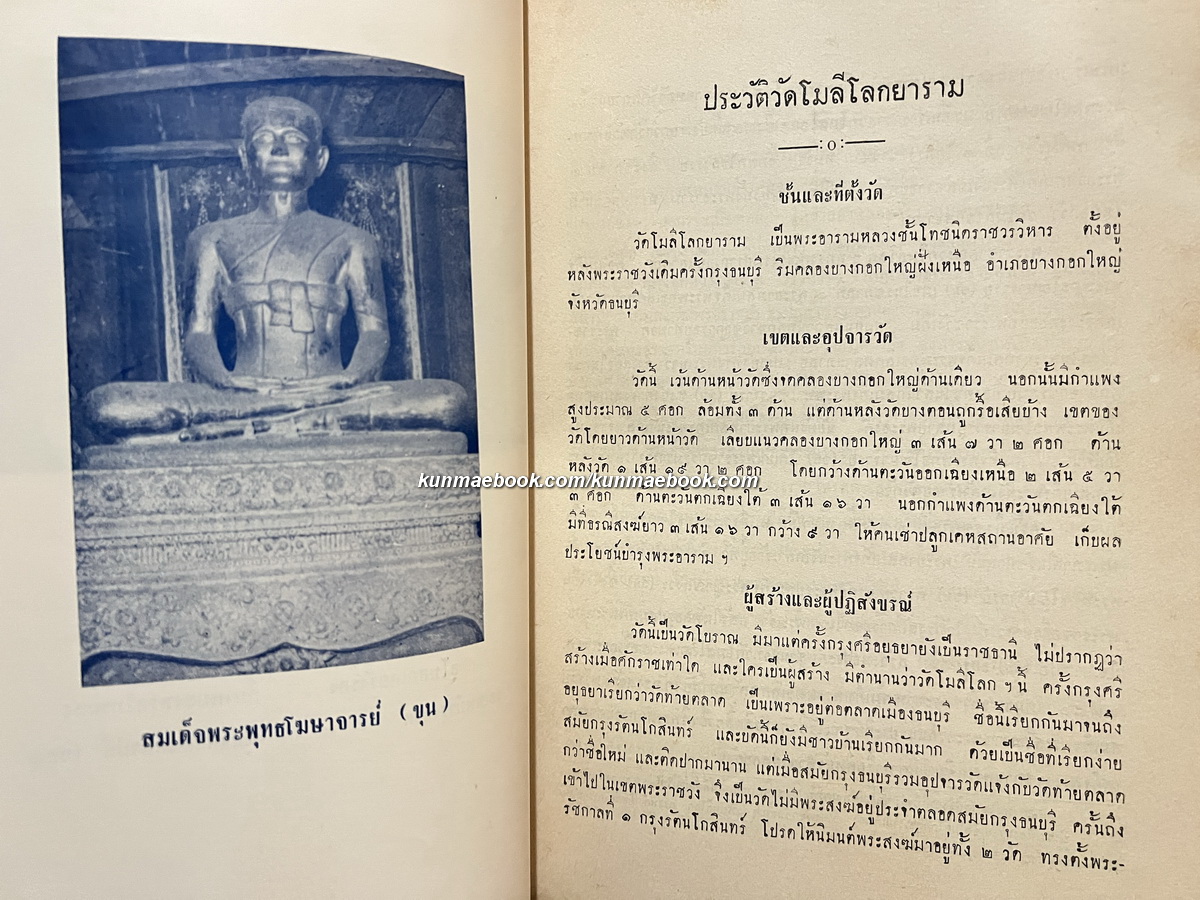 สมเด็จพระพุทธโฆษาจารย์ (ขุน)
ประวัติวัดโมลีโลกยาราม
——:o:——
ชั้นและที่ตั้งวัด
วัดโมลีโลกยาราม เป็นพระอารามหลวงชั้นโทชนิดราชวรวิหาร ตั้งอยู่
หลังพระราชวังเดิมครั้งกรุงธนบุรี ริมคลองบางกอกใหญ่ฝั่งเหนือ อำเภอบางกอกใหญ่
จังหวัดธนบุรี
เขตและอุปจารวัด
วัดนี้ เว้นด้านหน้าวัดซึ่งจดคลองบางกอกใหญ่ด้านเดียว นอกนั้นมีกำแพง
สูงประมาณ ๕ ศอก ล้อมทั้ง ๓ ด้าน แต่ด้านหลังวัดบางตอนถูกรื้อเสียบ้าง เขตของ
วัดโดยยาวด้านหน้าวัด เลียบแนวคลองบางกอกใหญ่ ๓ เส้น ๗ วา ๒ ศอก ด้าน
หลังวัด ๑ เส้น ๑๙ วา ๒ ศอก โดยกว้างด้านตะวันออกเฉียงเหนือ ๒ เส้น ๕ วา
kunmaebook.com/kunmaebook.com
๓ ศอก ด้านตะวันตกเฉียงใต้ ๓ เส้น ๑๖ วา นอกกำแพงด้านตะวันตกเฉียงใต้
มีที่ธรณีสงฆ์ยาว ๓ เส้น ๑๖ วา กว้าง ๙ วา ให้คนเช่าปลูกเคหสถานอาศัย เก็บผล
ประโยชน์บำรุงพระอาราม ฯ
ผู้สร้างและผู้ปฏิสังขรณ์
วัดนี้เป็นวัดโบราณ มีมาแต่ครั้งกรุงศรีอยุธยายังเป็นราชธานี ไม่ปรากฏว่า
สร้างเมื่อศักราชเท่าใด และใครเป็นผู้สร้าง มีตำนานว่าวัดโมลีโลก ฯ นี้ ครั้งกรุงศรี
อยุธยาเรียกว่าวัดท้ายตลาด เป็นเพราะอยู่ต่อตลาดเมืองธนบุรี ชื่อนี้เรียกกันมาจนถึง
สมัยกรุงรัตนโกสินทร์ และบัดนี้ก็ยังมีชาวบ้านเรียกกันมาก ด้วยเป็นชื่อที่เรียกง่าย
กว่าชื่อใหม่ และติดปากมานาน แต่เมื่อสมัยกรุงธนบุรีรวมอุปจารวัดแจ้งกับวัดท้ายตลาด
เข้าไปในเขตพระราชวัง จึงเป็นวัดไม่มีพระสงฆ์อยู่ประจำตลอดสมัยกรุงธนบุรี ครั้นถึง
รัชกาลที่ ๑ กรุงรัตนโกสินทร์ โปรดให้นิมนต์พระสงฆ์มาอยู่ทั้ง ๒ วัด ทรงตั้งพระ-